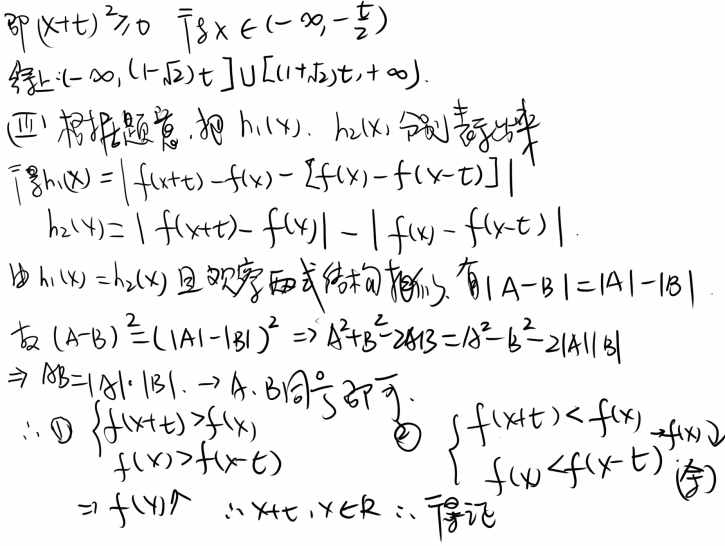 即(x+t)²≥0 得x∈(-∞,-t/2)
综上:(-∞,(1-√2)t]∪[(1+√2)t,+∞).
(Ⅲ)根据题意,把h₁(x)、h₂(x)分别表示出来
得h₁(x)=|f(x+t)-f(x)-[f(x)-f(x-t)]|
h₂(x)=|f(x+t)-f(x)|-|f(x)-f(x-t)|.
由h₁(x)=h₂(x)且观察两式结构相似、有|A-B|=|A|-|B|.
故(A-B)²=(|A|-|B|)² ⇒A²+B²-2AB=A²-B²-2|A||B|
⇒AB=|A|·|B|.→A、B同号即可.
∴①{f(x+t)>f(x) ②{f(x+t)<f(x)→f(x)↓
f(x)>f(x-t) f(x)<f(x-t) (舍)
⇒f(x)↑ ∴x+t,x∈R ∴得证